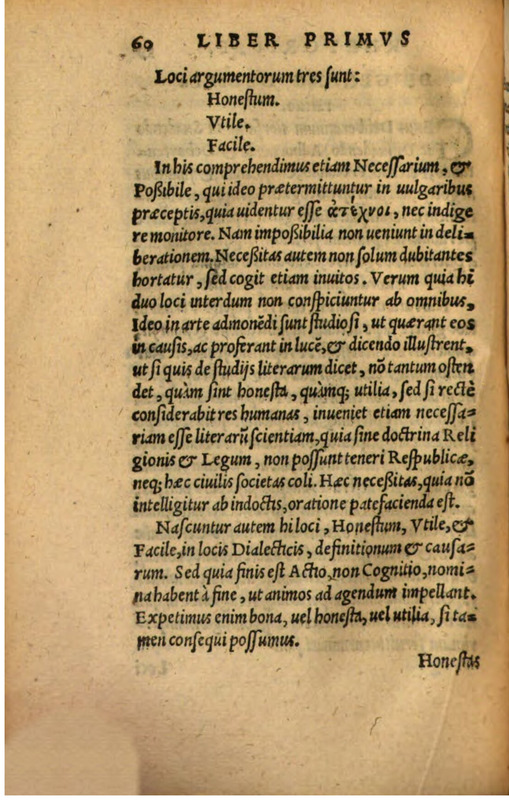 60 LIBER PRIMVS
Loci argumentorum tres sunt:
Honestum.
Vtile.
Facile.
In his comprehendimus etiam Necessarium, &
Poßibile, qui ideo prætermittuntur in uulgaribus
præceptis, quia uidentur esse ἀτέχνοι, nec indige
re monitore. Nam impoßibilia non ueniunt in deli-
berationem. Neceßitas autem non solum dubitantes
hortatur, sed cogit etiam inuitos. Verum quia hi
duo loci interdum non conspiciuntur ab omnibus,
Ideo in arte admonēdi sunt studiosi, ut quærant eos
in causis, ac proferant in lucē, & dicendo illustrent,
ut si quis de studijs literarum dicet, nō tantum osten
det, quàm sint honesta, quàmq; utilia, sed si rectè
considerabit res humanas, inueniet etiam necessa-
riam esse literarū scientiam, quia sine doctrina Reli
gionis & Legum, non possunt teneri Respublicæ,
neq; hæc ciuilis societas coli. Hæc neceßitas, quia nō
intelligitur ab indoctis, oratione patefacienda est.
Nascuntur autem hi loci, Honestum, Vtile, &
Facile, in locis Dialecticis, definitionum & causa-
rum. Sed quia finis est Actio, non Cognitio, nomi-
na habent à fine, ut animos ad agendum impellant.
Expetimus enim bona, uel honesta, uel utilia, si ta-
men consequi possumus.
Honestas